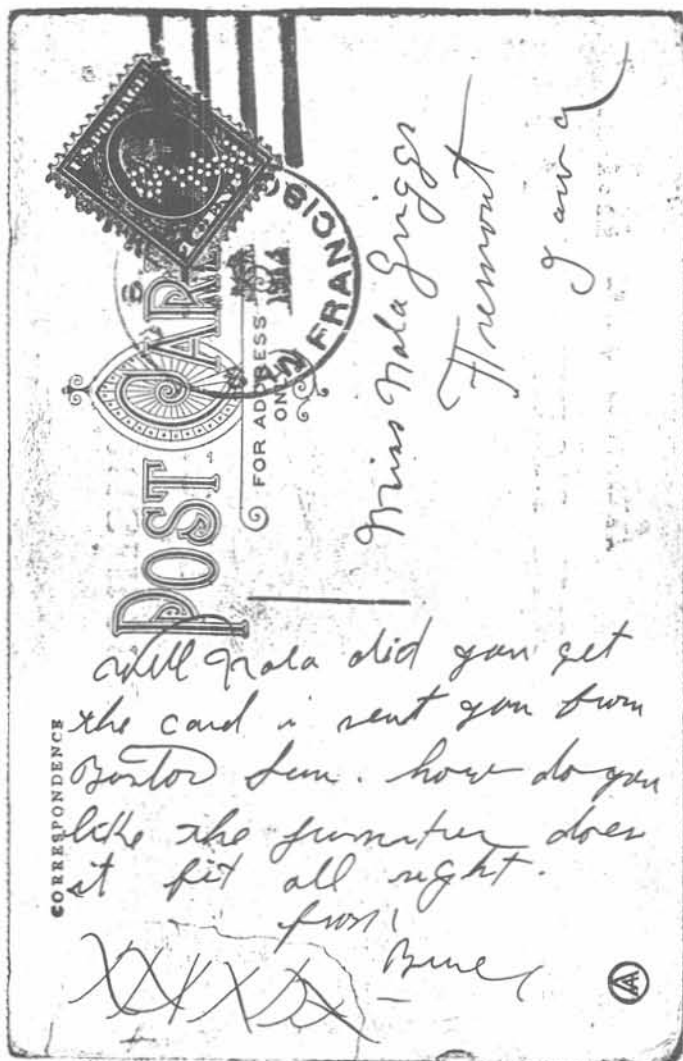 POST CARD
FOR ADDRESS
ONLY
SAN FRANCISCO
1914
Miss Nola Griggs
Fremont
Iowa
CORRESPONDENCE
Well Nola did you get
the card i sent you from
Boston Sun. how do you
like the furniture does
it fit all right.
from
XXXX
A